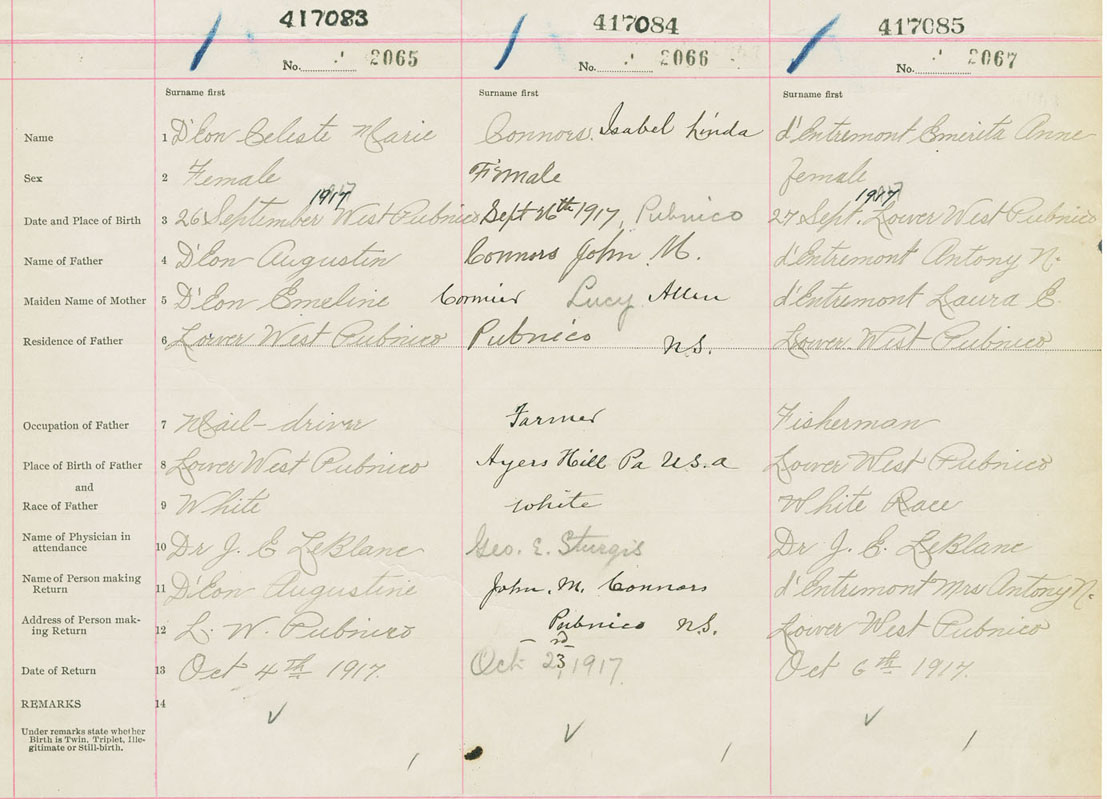 417083 417084 417085
No. 2065 No. 2066 No. 2067
Surname first Surname first Surname first
Name 1 D'Eon Celeste Marie Connors, Isabel Linda d'Entremont Emerita Anne
Sex 2 Female Female female
1917 1917
Date and Place of Birth 3 26 September West Pubnico Sept 26th 1917, Pubnico 27 Sept. Lower West Pubnico
Name of Father 4 D'Eon Augustin Connors John M. d'Entremont Antony N.
Maiden Name of Mother 5 D'Eon Emeline Cormier Lucy Allen d'Entremont Laura E.
Residence of Father 6 Lower West Pubnico Pubnico N.S. Lower West Pubnico
Occupation of Father 7 Mail-driver Farmer Fisherman
Place of Birth of Father 8 Lower West Pubnico Ayers Hill Pa U.S.a Lower West Pubnico
and
Race of Father 9 White White White Race
Name of Physician in
attendance 10 Dr J. E LeBlanc Geo. E. Sturgis Dr J. E. LeBlanc
Name of Person making
Return 11 D'Eon Augustine John. M. Connors d'Entremont Mrs Antony N.
Address of Person mak-
ing Return 12 L. W. Pubnico Pubnico N.S. Lower West Pubnico
Date of Return 13 Oct 4th 1917. Oct 23rd, 1917. Oct 6th 1917.
REMARKS 14
Under remarks state whether
Birth is Twin, Triplet, Ille-
gitimate or Still-birth.